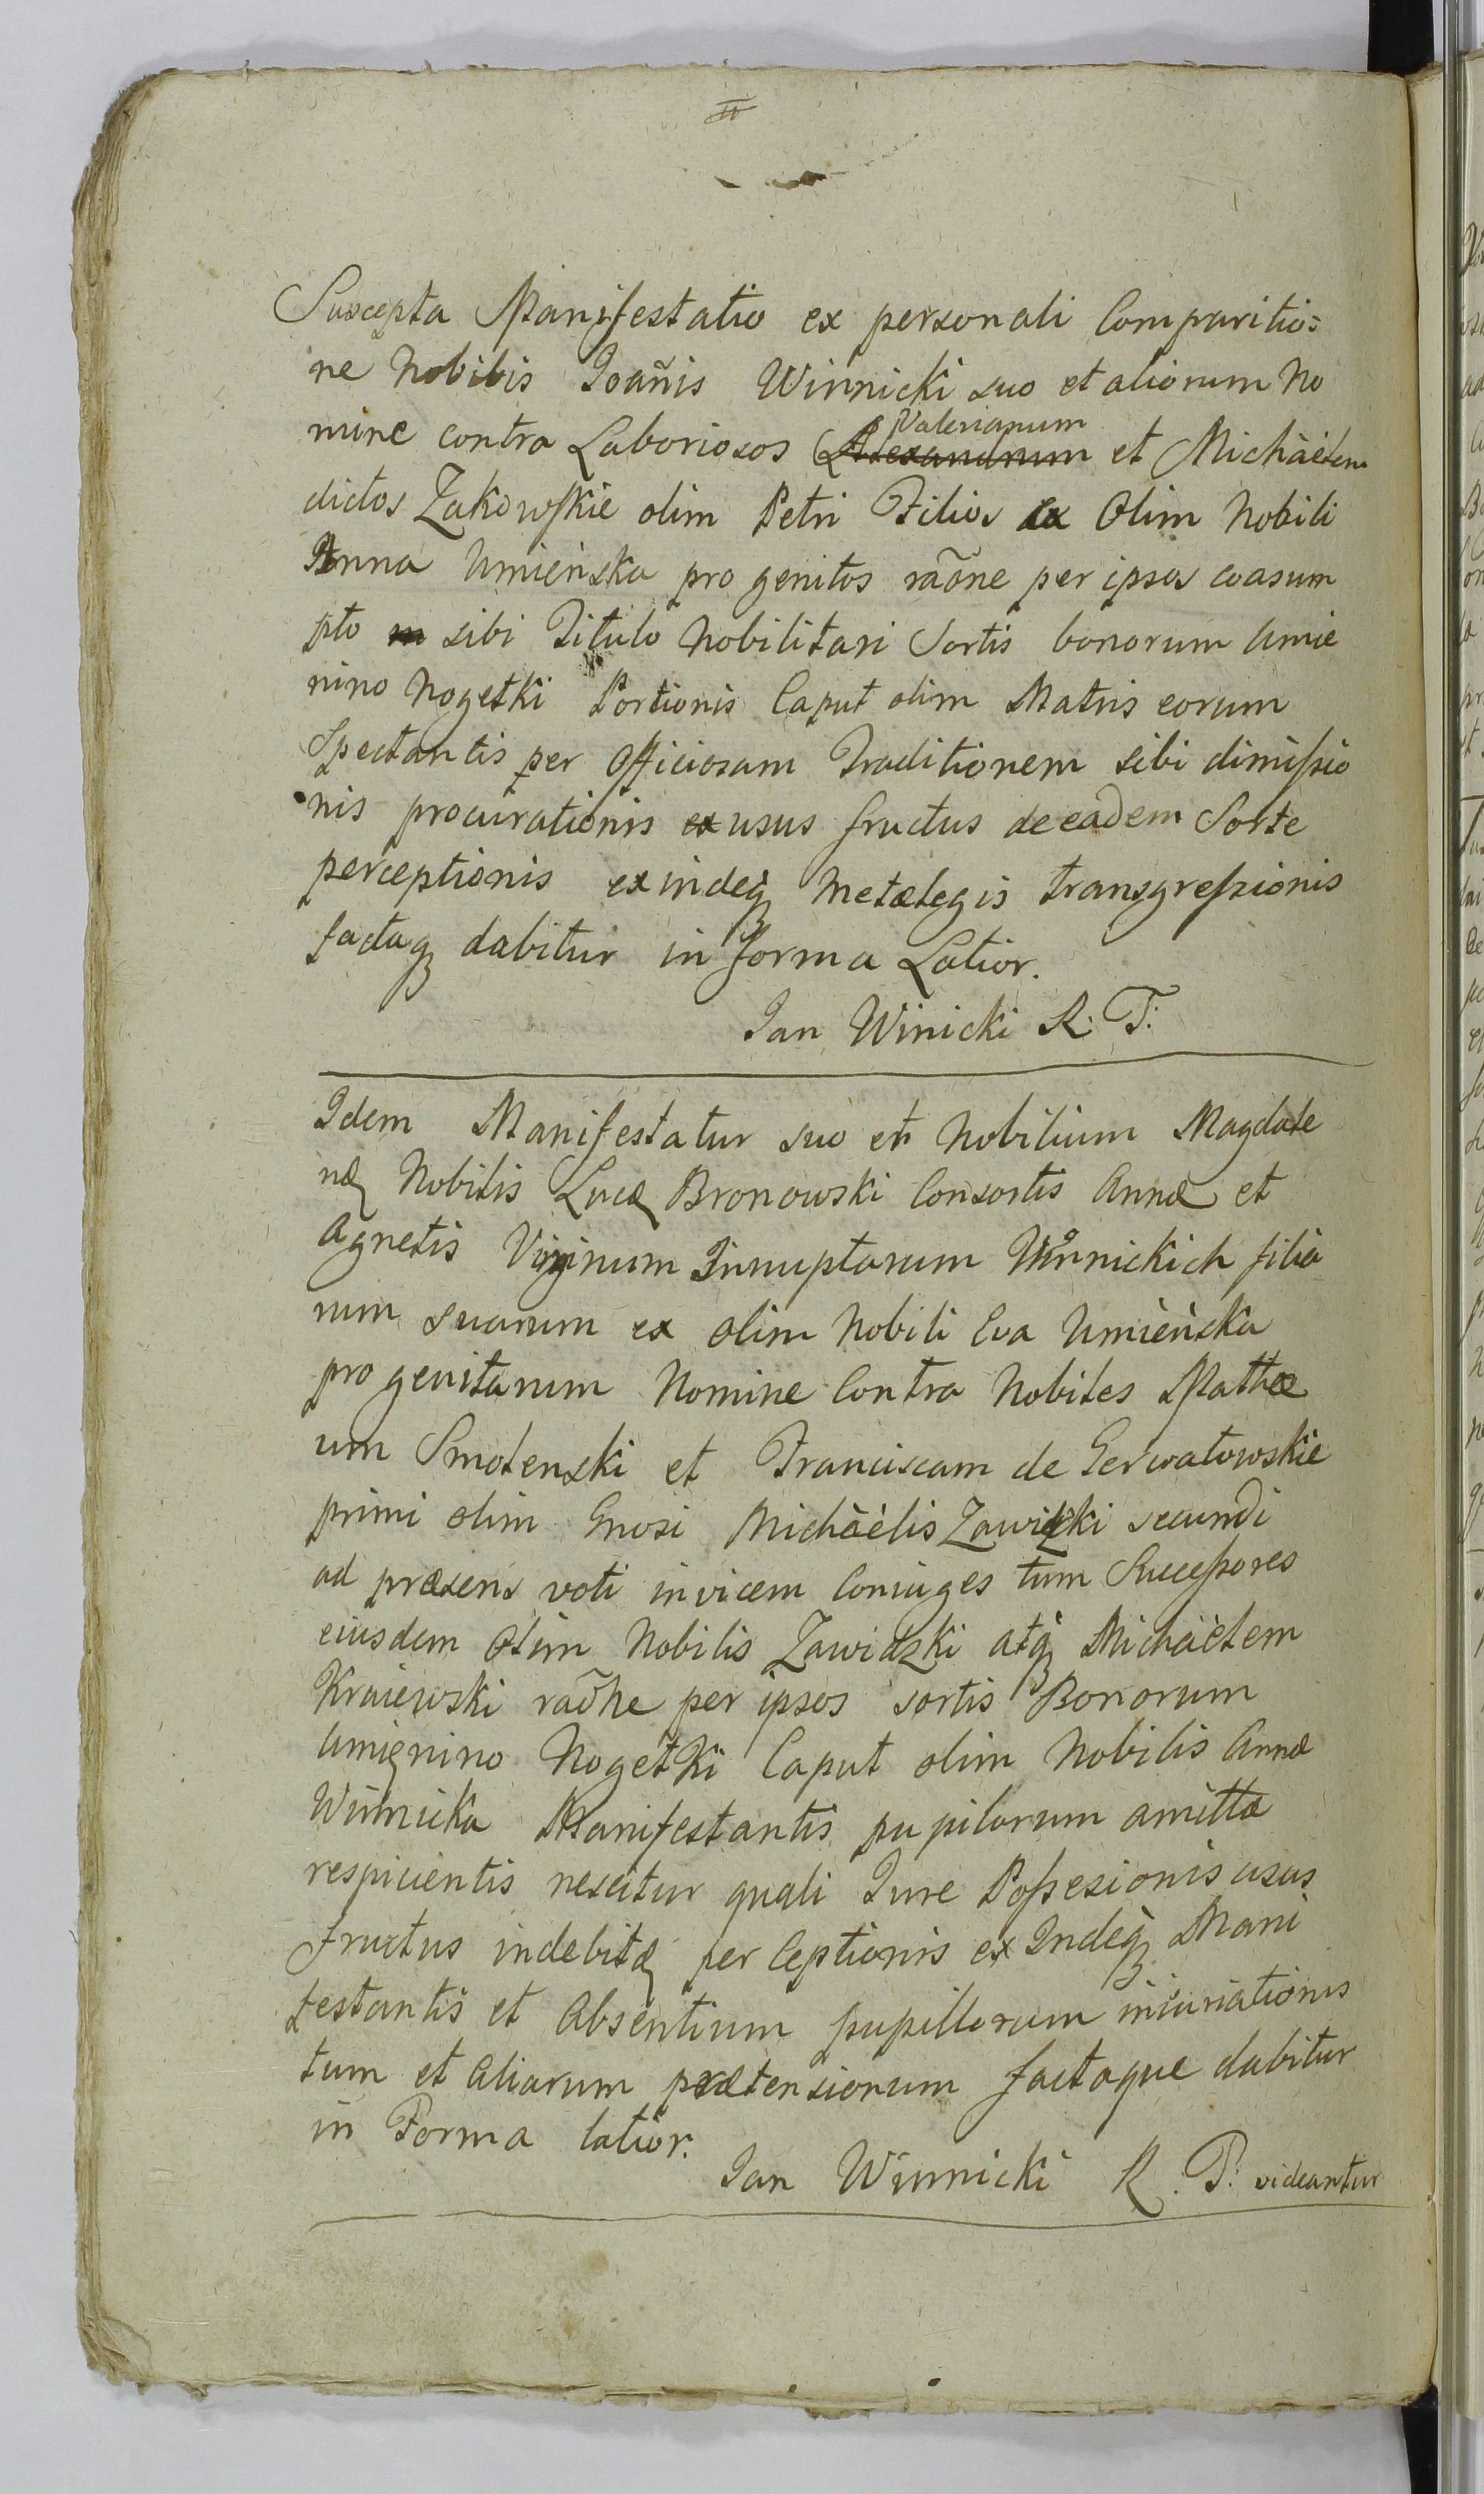 II
Suscepta Manifestatio ex personali Comparitio=
ne Nobilis Ioañis Winnicki suo et aliorum No
mine contra Laboriosos Alexandrum Valerianum et Michàëlem
dictos Zakowskie olim Petri Filios ex Olim Nobili
Anna Umieńska pro genitos raõne per ipsos coasum
pto sibi Titulo Nobilitari Sortis bonorum Umie
nino Nogetki Portionis Caput olim Matris eorum
Spectantis per Officiosam Traditionem sibi dimissio
nis procurationis ex usus fructus de eadem Sorte
perceptionis exindeq Metælegis transgressionis
factaq dabitur in forma Latior.
Jan Winicki R: T:
Idem Manifestatur suo et Nobilium Magdale
næ Nobilis Lucæ Bronowski Consortis Annæ et
Agnetis Virginum Innuptarum Winnickich filia
rum suarum ex olim Nobili Eva Umieńska
pro genitarum Nomine Contra Nobiles Mathæ
um Smolenski et Franciscam de Gerwatowskie
primi olim Gnosi Michàèlis Zawidzki secundi
ad præsens voti invicem Coniuges tum Successores
eiusdem Olim Nobilis Zawidzki atq Michàëlem
Kraiewski raõne per ipsos sortis Bonorum
Umięnino Nogetki Caput olim Nobilis Annæ
Winnicka Manifestantis pupilarum amittæ
respicientis nescitur quali Jure Possesionis usus
fructus indebitæ per Ceptionis ex Indeq Mani
festantis et Absentium pupillarum iniuriationis
tum et Aliarum prætensionum factaque dabitur
in Forma latior.
Jan Winnicki R. P: videantur